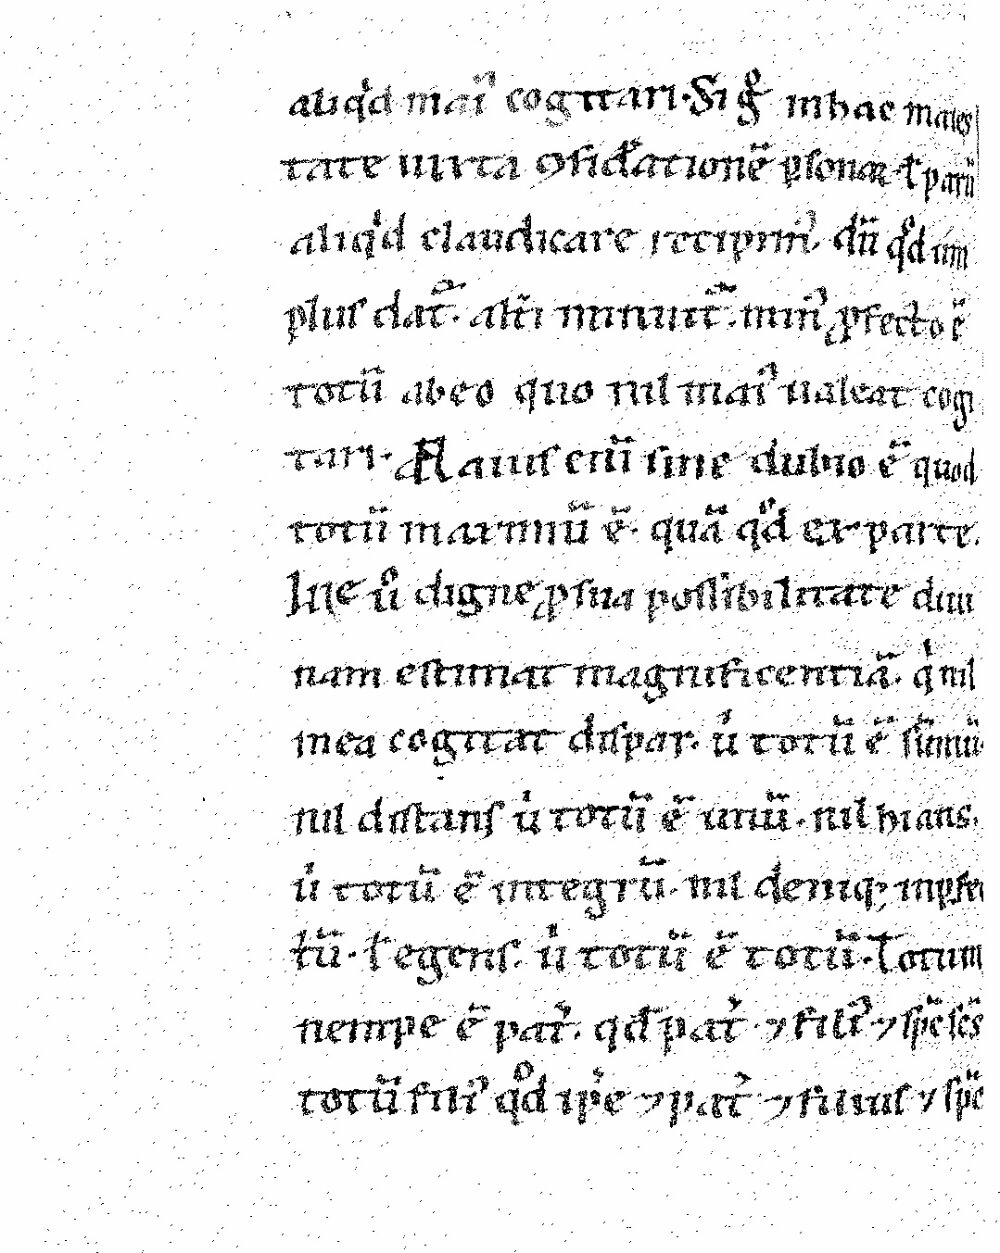 aliqͥd maiꝰ cogitari. Si gͦ in hac maies
tate iuxta ꝯsid̾ationē ꝑsonaꝝ. ł parū
aliqͥd claudicare recipim̃. dū qͦd uni
plus dat᷑. alt̃i minuit᷑. minꝰ ꝓfecto ē
totū ab eo quo nil maiꝰ ualeat cogi
tari. Maius eni᷑ sine dubio ē quod
totū maximū ē. quā qͦd ex parte.
Ille u̾o digne ꝓ sua possibilitate diui
nam estimat magnificentiā. qͥ nil
in ea cogitat dispar. uͥ totū ē sūmū.
nil distans uͥ totū ē unū. nil hians.
uͥ totū ē integrū. nil deniqꝫ inꝑfec
tū. ł egens. uͥ totū ē totū. Totum
nempe ē pat᷑. qd̾ pat᷑ ⁊ filiꝰ ⁊ sp̄c sc̄s
totū filiꝰ qͦd ip̄e ⁊ pat᷑ ⁊ filius ⁊ sp̄c